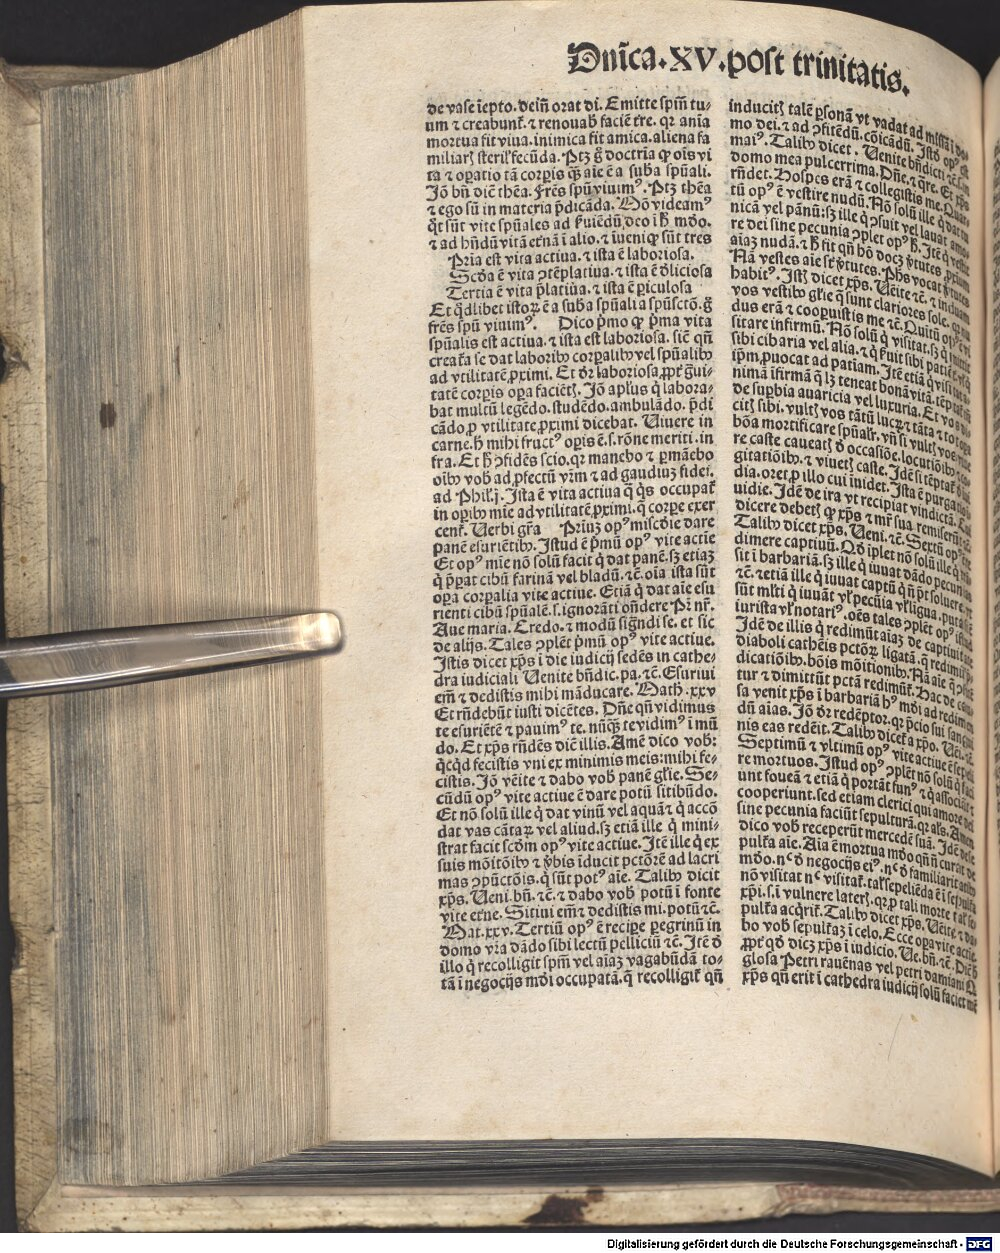 Dnīca.XV.post trinitatis.
de vase īepto. deīn orat dī. Emitte spm̄ tu-
um ⁊ creabunt̄. ⁊ renouab̄ faciē tr̄e. qr anīa
mortua fit viua. inimica fit amica. aliena fa
miliarꝭ sterilꝭ fecūda. Ptꝫ g̊ doctrīa ꝙ oīs vi
ta ⁊ oꝑatio tā corꝑis qꝫ aīe ē a suba spūali.
Jō bn̄ diē thēa. fr̄es spū viuimꝰ. Ptꝫ thēa
⁊ ego sū in materia p̄dicāda. Mō videamꝰ
q̇t sūt vite spūales ad ẜuiēdū deo i h̄ mō.
⁊ ad hn̄dū vitā etnā i alio. ⁊ iueni ꝙ sūt tres
Pria est vita actiua. ⁊ ista ē laboriosa.
Scd̄a ē vita ꝯtēplatiua. ⁊ ista ē d̄liciosa
Tertia ē vita p̄latiua. ⁊ ista ē ꝑiculosa
Et q̇dlibet istoꝝ ē a suba spūali a spūsctō. g̊
frēs spū viuimꝰ. Dico p̄mo ꝙ p̄ma vita
spūalis est actiua. ⁊ ista est laboriosa. sic̄ qn̄
creat̄a se dat laboribꝰ corꝑalibꝰ vel spūalibꝰ
ad vtilitatē ꝓximi. Et dr̄ laboriosa ꝓpt̄ g̊ui-
tatē corꝑis oꝑa faciētꝭ. Jō apl̄us q̇ labora-
bat multū legēdo. studēdo. ambulādo. p̄di
cādo ꝓ vtilitate ꝓximi dicebat. Viuere in
carne. h̄ mihi fructꝰ oꝑis ē. s. rōne meriti. in
fra. Et h̄ ꝯfidēs scio. qr manebo ⁊ ꝑmāebo
oībꝰ vob̄ ad ꝓfectū vrm̄ ⁊ ad gaudiuꝫ fidei.
ad Phil. j. Ista ē vita actiua q̄ q̇s occupat̄
in oꝑibꝰ mīe ad vtilitatē ꝓximi. q̇ corꝑe exer
cent̄. Verbi gr̄a Primū opꝰ miscd̄ie dare
panē esuriētibꝰ. Istud ē p̄mū opꝰ vite actie
Et opꝰ mīe nō solū facit q̇ dat panē. sꝫ etiaꝫ
q̇ p̄pat cibū farinā vel bladū. ⁊c̄. oīa ista sūt
oꝑa corꝑalia vite actiue. Etiā q̇ dat aīe esu
rienti cibū spūalē. s. ignorāti oñdere Pr̄ nr̄.
Aue maria. Credo. ⁊ modū signdi se. et sic
de alijs. Tales ꝯplēt p̄mū opꝰ vite actiue.
Istis dicet xp̄s i die iudicij sedēs in cathe-
dra iudiciali Venite bn̄dic. pa. ⁊c̄. Esuriui
em̄ ⁊ dedistis mihi māducare. Math. xxv
Et rn̄debūt iusti dicētes. Dn̄e qn̄ vidimus
te esuriētē ⁊ pauimꝰ te. nūq̄ te vidimꝰ i mū
do. Et xp̄s rn̄dēs diē illis. Amē dico vob̄:
q̇cq̇d fecistis vni ex minimis meis: mihi fe-
cistis. Jō vēite ⁊ dabo vob̄ panē gl̄ie. Se-
cūdū opꝰ vite actiue ē dare potū sitibūdo.
Et nō solū ille q̇ dat vinū vel aquā ⁊ q̇ accō
dat vas cātaꝝ vel aliud. sꝫ etiā ille q̇ mini-
strat facit scdm̄ opꝰ vite actiue. Itē ille q̇ ex
suis mōitōibꝰ ⁊ v̄bis īducit pctōrē ad lacri
mas ꝯpūctōis. q̇ sūt potꝰ aīe. Talibꝰ dicit
xp̄s. Veni. bn̄. ⁊c̄. ⁊ dabo vob̄ potū i fonte
vite etne. Sitiui em̄ ⁊ dedistis mi. potū ⁊c̄.
Mat. xxv. Tertiū opꝰ ē reciꝑe ꝑegrinū in
domo vr̄a dādo sibi lectū pelliciū ⁊c̄. Itē d̄
illo q̇ recolligit spm̄ vel aīaꝫ vagabūdā to-
tā i negocijs mōi occupatā. q̄ recolligit̄ qn̄
inducitꝭ talē ꝑsonā vt vadat ad missā i do-
mo dei. ⁊ ad ꝯfitēdū. cōicādū. Istd̄ opꝰ est
maiꝰ. Talibꝰ dicet. Venite bn̄dicti ⁊c̄.
domo mea pulcerrima. Dn̄e. ⁊ q̇re. Et xp̄s
rn̄det. Hospes erā ⁊ collegistis me. Quar-
tū opꝰ ē vestire nudū. Nō solū ille q̇ dat tu
nicā vel pānū: sꝫ ille q̇ ꝯsuit vel lauat amo-
re dei sine pecunia ꝯplet opꝰ h̄. Itē q̇ vestit
aīaꝫ nudā. ⁊ h̄ fit qn̄ hō docꝫ v̄tutes ꝓximū
Nā vestes aīe st̄ v̄tutes. Phs vocat v̄tutes
habitꝰ. Istꝭ dicet xp̄s. Vēite ⁊c̄. ⁊ induam
vos vestibꝰ gl̄ie q̇ sunt clariores sole. qr nu
dus erā ⁊ cooꝑuistis me ⁊c̄. Quītū opꝰ ē vi
sitare infirmū. Nō solū q̇ visitat. sꝫ q̇ mittit
sibi cibaria vel alia. ⁊ q̇ ẜuit sibi patiēt̄
ip̄m ꝓuocat ad patiam. Itē etiā q̇ visitat a
nimā īfirmā q̇ lꝫ teneat bonā vitā. tēptat̄ tn̄
de suꝑbia auaricia vel luxuria. Et vos di-
citꝭ sibi. vultꝭ vos tātū lucrꝫ ⁊ tāta ⁊ tot oꝑa
bōa mortificare spūalr̄. vn̄ si vultꝭ vos
re caste caueatꝭ d̄ occasiōe. locutiōibꝰ ⁊ co-
gitatiōibꝰ. ⁊ viuetꝭ caste. Idē si tēptat̄ d̄ iui
dia. oret ꝓ illo cui iuidet. Ista ē purgatio
uidie. Idē de ira vt recipiat vindictā.
dicere debetꝭ ꝙ xp̄s ⁊ mr̄ sua remiserūt ⁊c̄
Talibꝰ dicet xp̄s. Veni. ⁊c̄. Sextū opꝰ ē re
dimere captiuū. Qd̄ īplet nō solū ille q̇
sit i barbariā. sꝫ ille q̇ iuuat dādo pecuniam
⁊c̄. ⁊ etiā ille q̇ iuuat captū q̇ n̄ p̄t soluere. vt
sūt ml̄ti q̇ iuuāt vl̄ pecūia vl̄ ligua. puta sic̄
iurista vl̄ notariꝰ. oēs tales ꝯplēt opꝰ istud
Idē de illis q̇ redimūt aīaꝫ de captiuitate
diaboli cathēis pctōꝝ ligatā. q̇ redimit̄ p̄
dicatiōibꝰ. bōis mōitionibꝰ. Nā aīe q̇ ꝯfitē
tur ⁊ dimittūt pctā redimūt̄. Hac de cau-
sa venit xp̄s i barbariā hꝰ mōi ad redimen
dū aīas. Jō dr̄ redēptor. qr p̄cio sui sangui
nis eas redēit. Talibꝰ dicet̄ a xp̄o. Vēi. ⁊c̄.
Septimū ⁊ vltimū opꝰ vite actiue ē sepeli
re mortuos. Istud opꝰ ꝯplēt nō solū q̇ faci
unt foueā ⁊ etiā q̇ portāt funꝰ ⁊ q̇ associāt ⁊
cooperiunt. sed etiam clerici qui amore dei
sine pecunia faciūt sepulturā. qr als̄. Amen
dico vob̄ receperūt mercedē suā. Idē de se
pult̄a aīe. Aīa ē mortua mōo qn̄ n̄ curat de
mōo. nᶜ d̄ negocijs eiꝰ. nᶜ d̄ familiaritatibꝰ
nō visitat nᶜ visitat̄. tal̄ sepeliēda ē i sepult̄a
xp̄i. s. i vulnere laterꝭ. qr ꝓ tali morte ⁊ tal̄ se-
pult̄a acq̇rit̄. Talibꝰ dicet xp̄s. Vēite ⁊ da-
bo vob̄ sepult̄aꝫ i celo. Ecce oꝑa vite actie.
ꝓpt̄ qd̄ dicꝫ xp̄s i iudicio. Ve. bn̄. ⁊c̄. Diē h̄
glosa Petri rauēnas vel petri damiani Q
xp̄s qn̄ erit i cathedra iudicij solū faciet mē
Digitalisierung gefördert durch die Deutsche Forschungsgemeinschaft - DFG